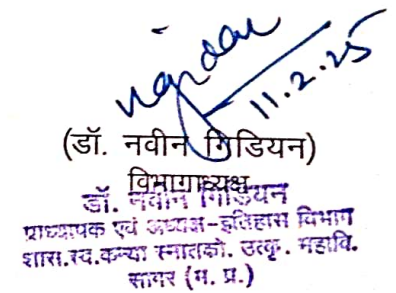 11.2.25
(डॉ. नवीन गिडियन)
विभागाध्यक्ष
डॉ. नवीन गिडियन
प्राध्यापक एवं अध्यक्ष-इतिहास विभाग
शास.स्व.कन्या स्नातको. उत्कृ. महावि.
सागर (म. प्र.)